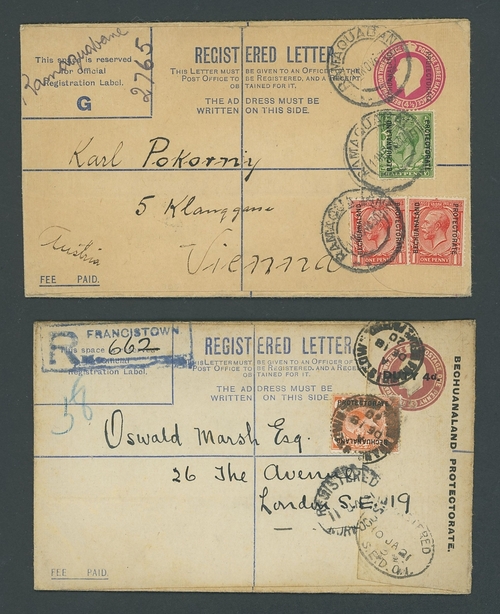 This space is reserved
for Official
Registration Label.
Ramaquabane
G
2765
REGISTERED LETTER.
THIS LETTER MUST BE GIVEN TO AN OFFICER OF THE
POST OFFICE TO BE REGISTERED, AND A RECEIPT
OBTAINED FOR IT.
THE ADDRESS MUST BE
WRITTEN ON THIS SIDE.
RAMAQUABANE
RAMAQUABANE
RAMAQUABANE
BECHUANALAND
PROTECTORATE
BECHUANALAND
PROTECTORATE
ONE PENNY
BECHUANALAND
PROTECTORATE
ONE PENNY
Karl Pokorny
5 Klanggasse
Austria
Vienna
FEE PAID.
R
FRANCISTOWN
This space
662
Registration Label.
58
REGISTERED LETTER.
THIS LETTER MUST BE GIVEN TO AN OFFICER OF THE
POST OFFICE TO BE REGISTERED, AND A RECEIPT
OBTAINED FOR IT.
THE ADDRESS MUST BE
WRITTEN ON THIS SIDE.
4d.
BECHUANALAND PROTECTORATE.
BECHUANALAND
PROTECTORATE
Oswald Marsh Esq.
26 The Avenue
London S.E. 19
REGISTERED
REGISTERED
10 JA 21
S.E.D.O.
FEE PAID.